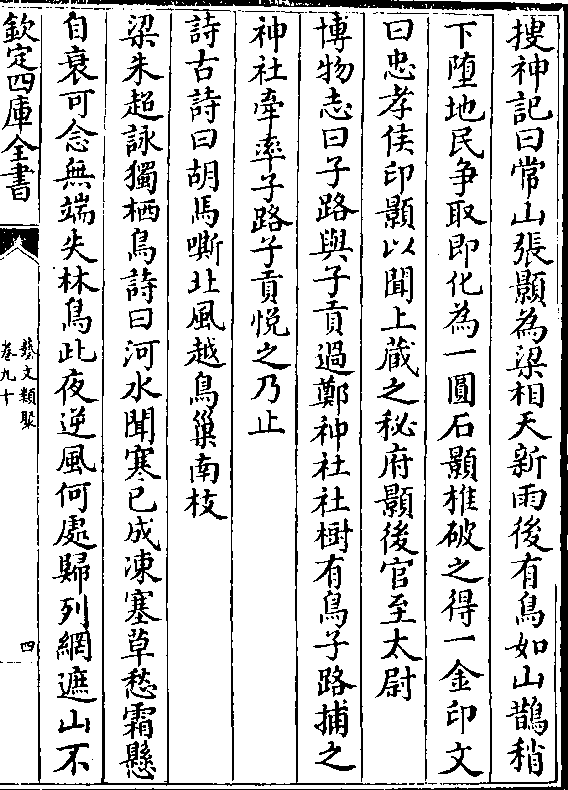 搜神記曰常山張顥為梁相天新雨後有鳥如山鵲稍
下墮地民争取即化為一圓石顥椎破之得一金印文
曰忠孝侯印顥以聞上蔵之秘府顥後官至太尉
博物志曰子路與子貢過鄭神社社樹有鳥子路捕之
神社牽率子路子貢悦之乃止
詩古詩曰胡馬嘶北風越鳥巢南枝
梁朱超詠獨栖鳥詩曰河水聞寒已成凍塞草愁霜懸
自衰可念無端失林鳥此夜逆風何處歸列網遮山不
欽定四庫全書
藝文類聚
卷九十
四